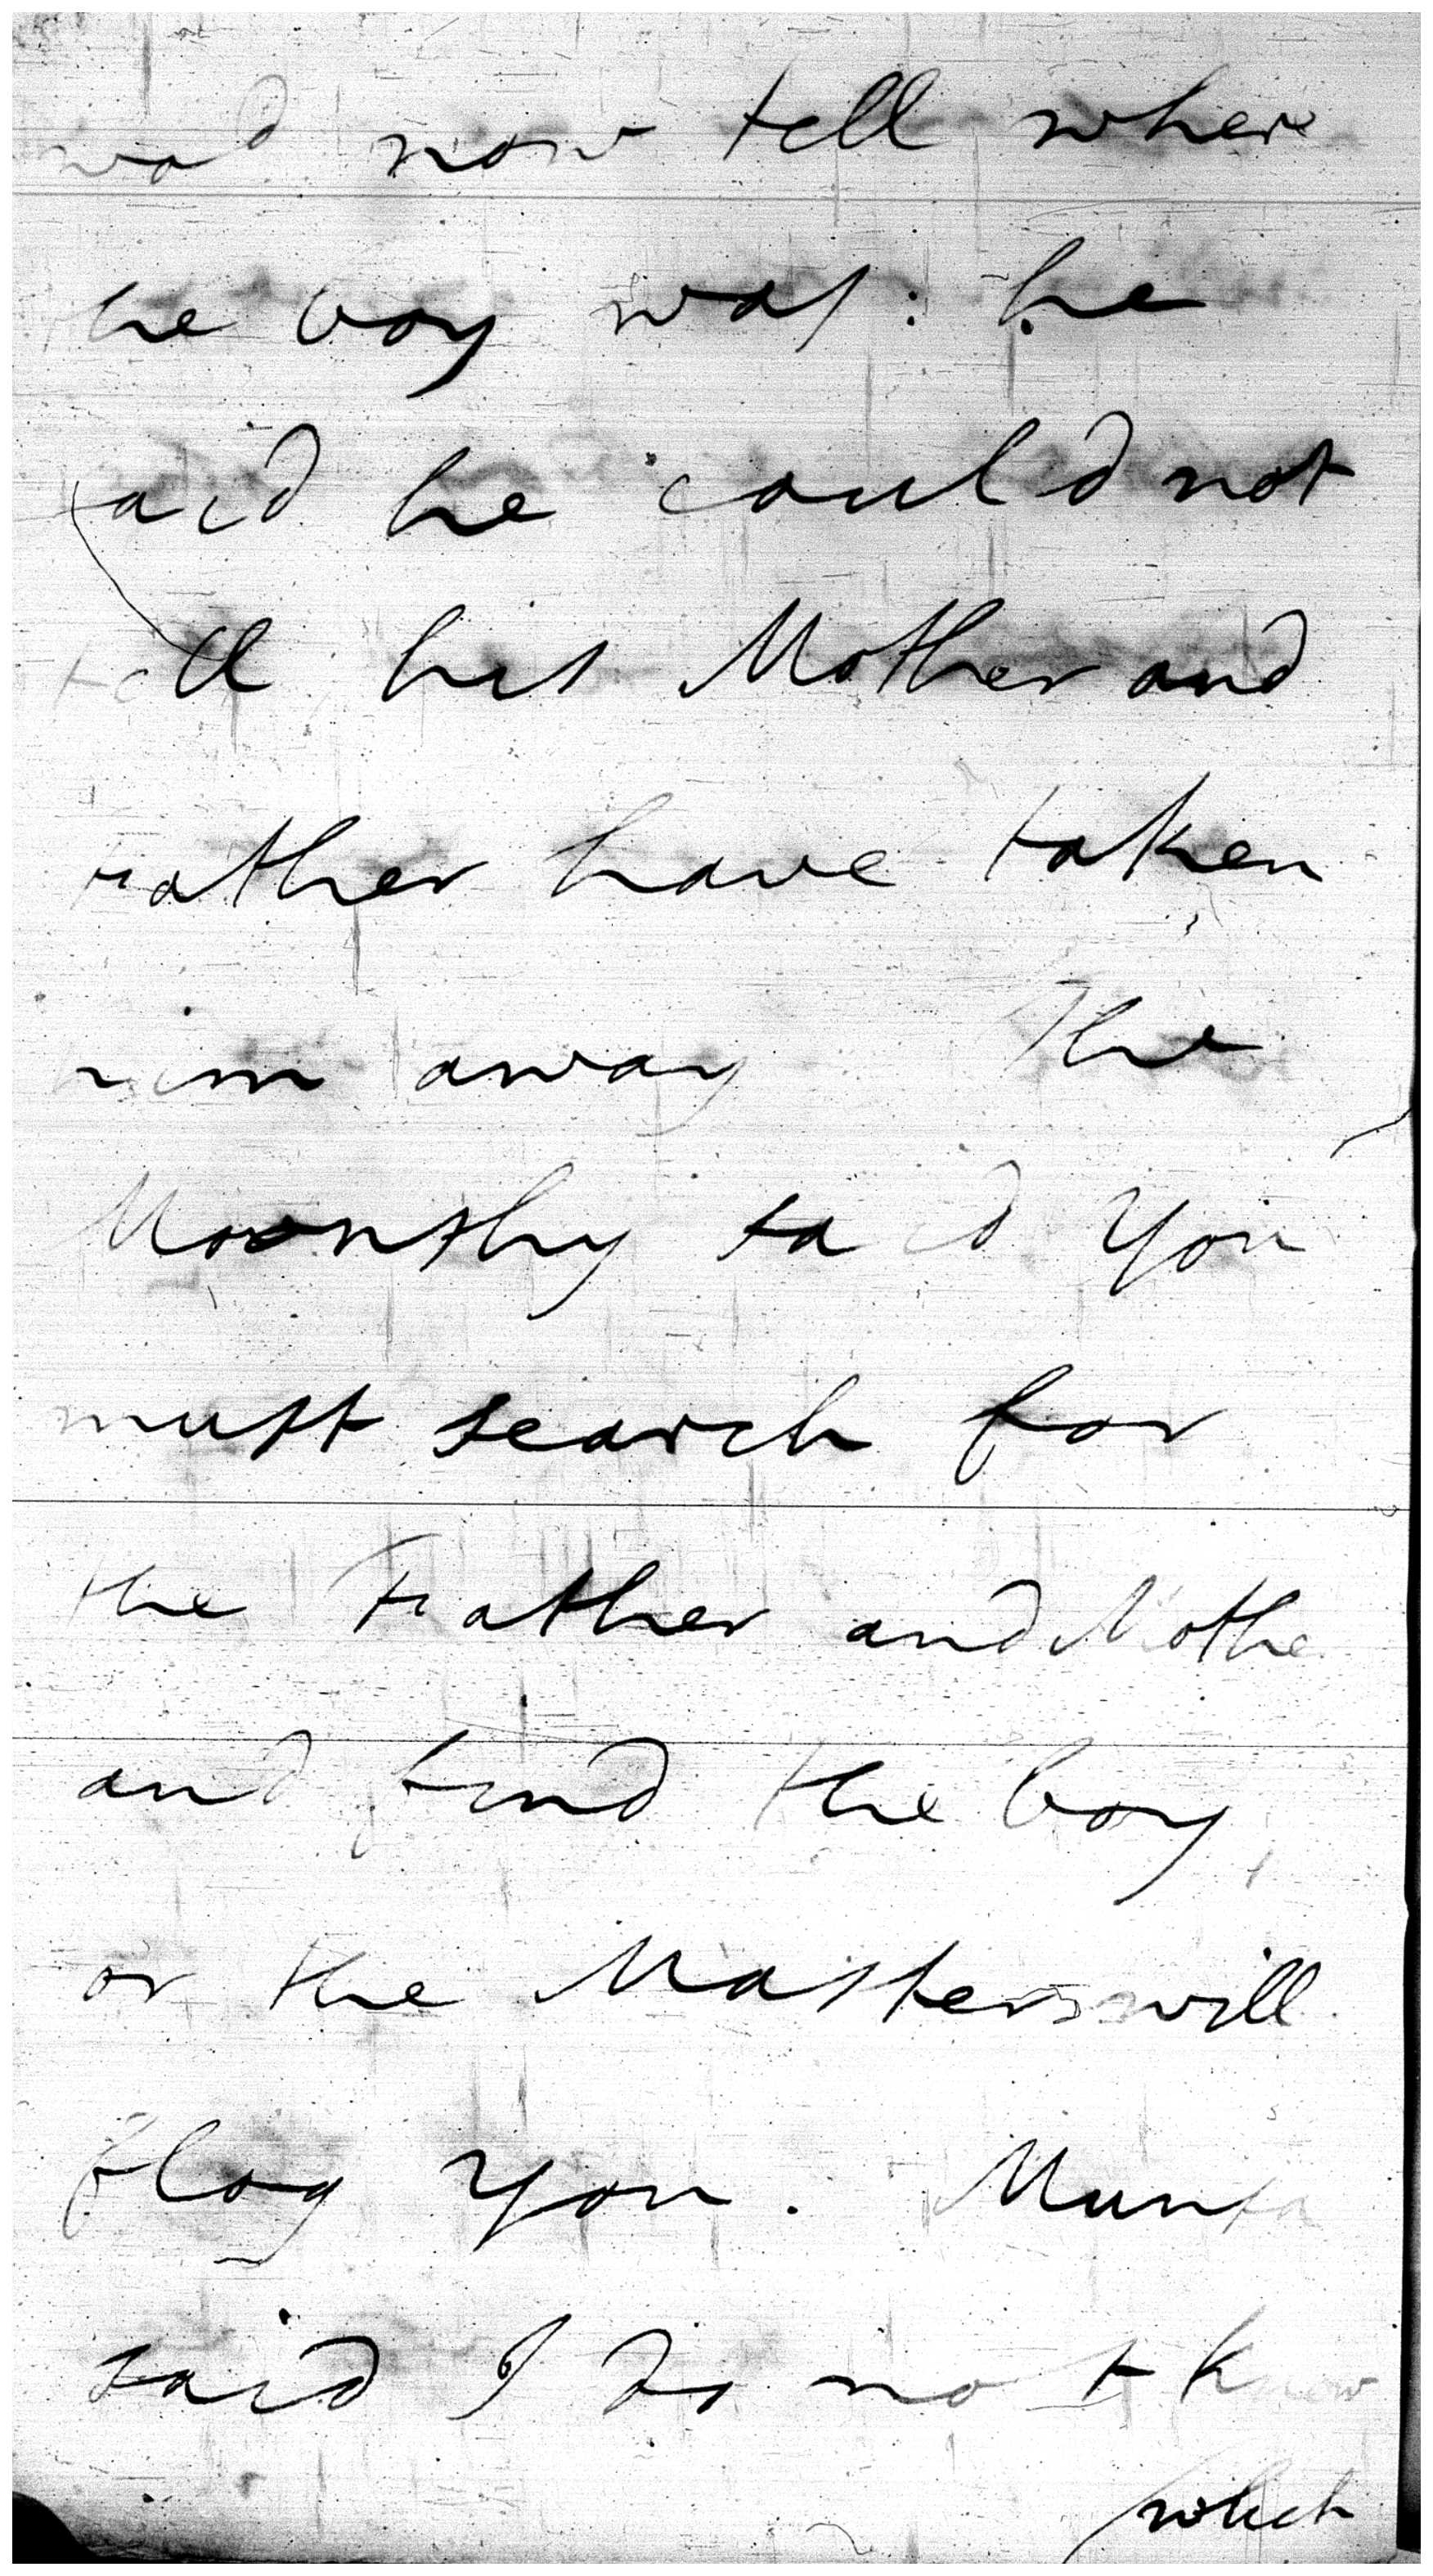 wod now tell where
he boy was: he
said he could not
tell his Mother and
Father have taken
him away The
Moonshy said you
must search for
the Father and Mothe
and find the boy,
or the Masters will
flog you. Munsa
said I do not know
which